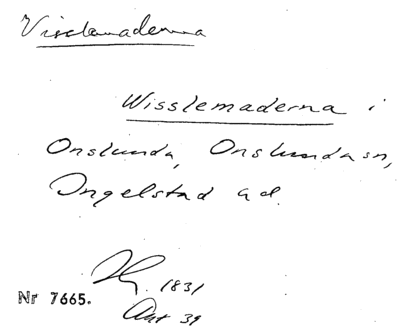 Visslemaderna
Wisslemaderna i
Onslunda, Onslunda sn,
Ingelstad hd.
1831
Nr 7665.
Akt 39